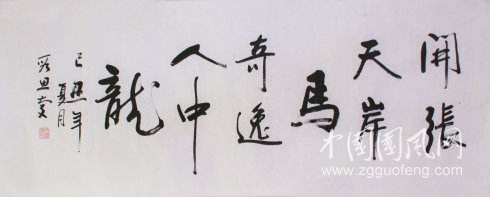 開張
天岸
馬
奇逸
人中
龍
年
夏月
中國國風网
www.zgguofeng.com